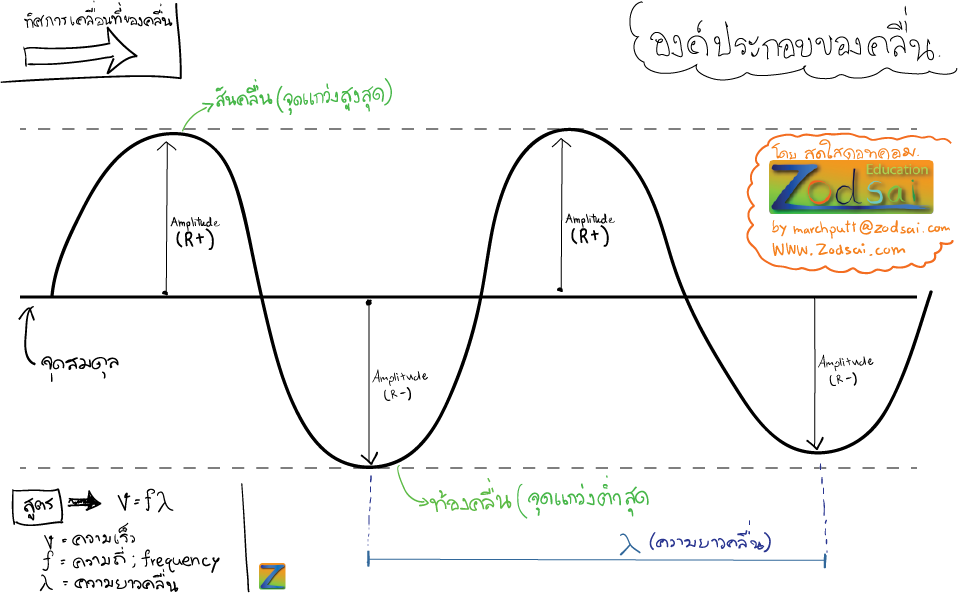 ทิศการเคลื่อนที่ของคลื่น
องค์ประกอบของคลื่น.
สันคลื่น (จุดแกว่งสูงสุด)
โดย สดใสดอทคอม.
Education
Zodsai
by marchputt@zodsai.com
WWW.Zodsai.com
Amplitude
(R+)
Amplitude
(R+)
จุดสมดุล
Amplitude
(R-)
Amplitude
(R-)
ท้องคลื่น (จุดแกว่งต่ำสุด
λ (ความยาวคลื่น)
สูตร v=fλ
v = ความเร็ว
f = ความถี่ ; frequency
λ = ความยาวคลื่น
Z